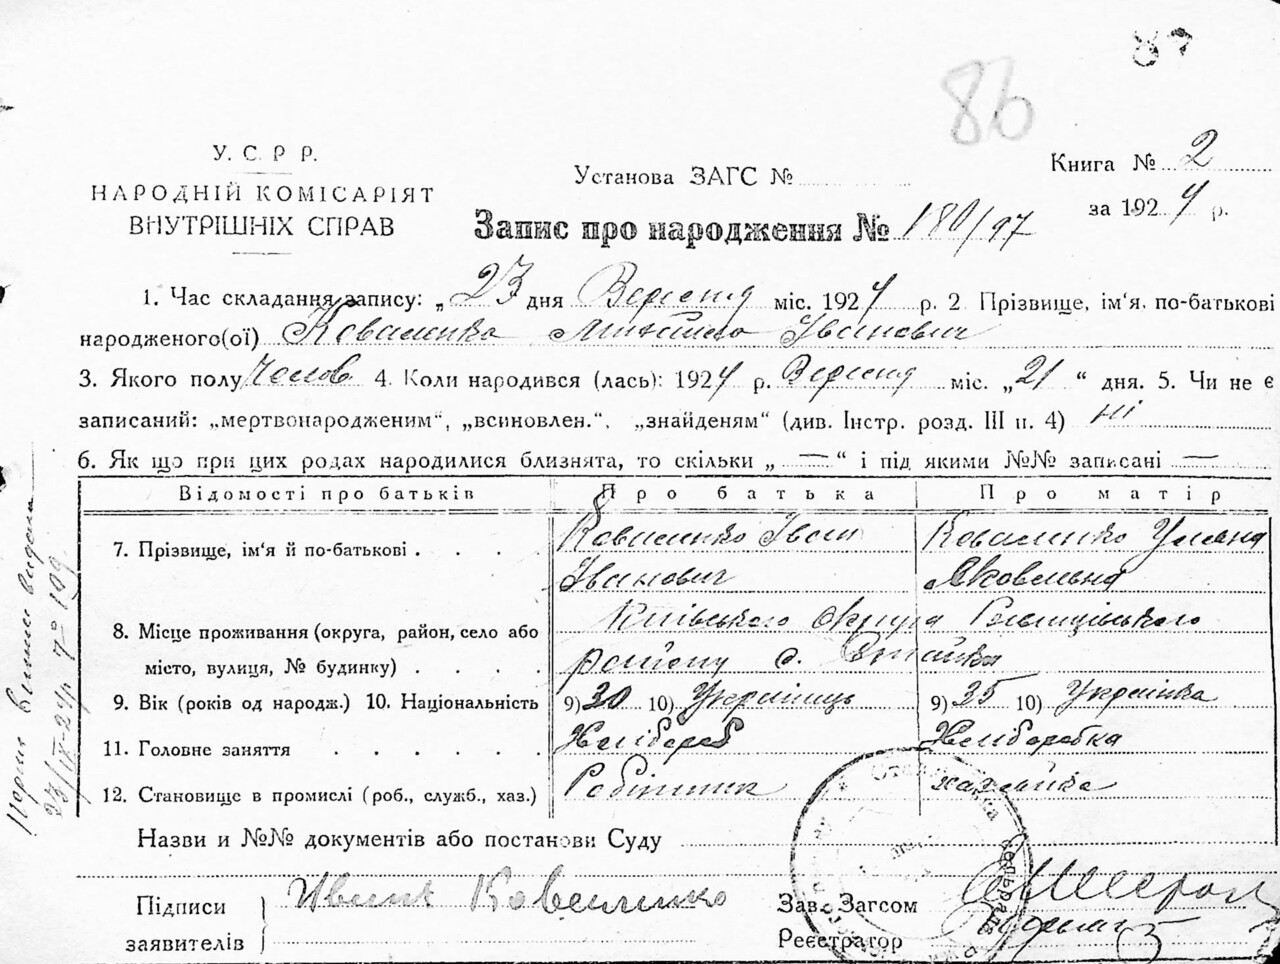 87
86
У. С. Р Р.
НАРОДНІЙ КОМІСАРІЯТ
ВНУТРІШНІХ СПРАВ
Установа ЗАГС №
Книга № 2
за 1924 р.
Запис про народження № 180/97
1. Час складання запису: „23 дня Вересня міс. 1924 р. 2. Прізвище, ім'я, по-батькові
народженого(ої) Коваленко Михайло Іванович
3. Якого полу Чолов 4. Коли народився (лась): 1924 р. Вересня міс. „21 “ дня. 5. Чи не є
записаний: „мертвонародженим“, „всиновлен.“, „знайденям“ (див. Інстр. розд. III п. 4) ні
6. Як що при цих родах народилися близнята, то скільки „ — “ і під якими №№ записані —
Відомості про батьків Про батька Про матір
7. Прізвище, ім'я й по-батькові . . . Коваленко Іван Коваленко Уляна
Іванович Яковлевна
8. Місце проживання (округа, район, село або Київського Округа
місто, вулиця, № будинку) . . . . району с.
9. Вік (років од народж.) 10. Національність 9) 30 10) Українець 9) 35 10) Українка
11. Головне заняття . . . . . . Хлібороб Хлиборобка
12. Становище в промислі (роб., служб., хаз.) Робітник хазяйка
Назви и №№ документів або постанови Суду
Підписи
заявителів
Ивник Коваленко
Зав. Загсом
Реєстратор
видана
23/IX-24р. № 109